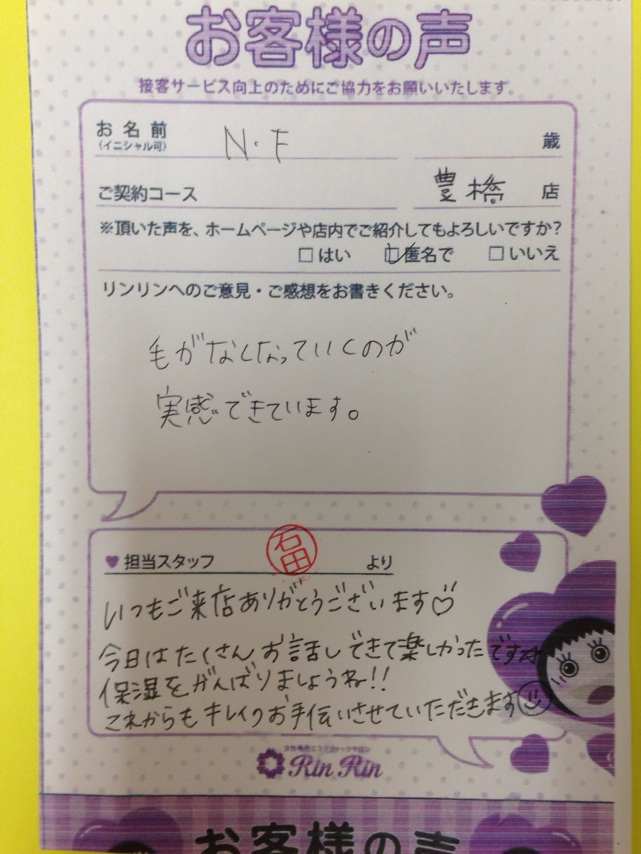 お客様の声
接客サービス向上のためにご協力をお願いいたします。
お名前 N・F 歳
(イニシャル可)
ご契約コース 豊橋 店
※頂いた声を、ホームページや店内でご紹介してもよろしいですか?
□はい □匿名で □いいえ
リンリンへのご意見・ご感想をお書きください。
毛がなくなっていくのが
実感できています。
♥担当スタッフ 石田 より
いつもご来店ありがとうございます♡
今日はたくさんお話しできて楽しかったです☆
保湿をがんばりましょうね!!
これからもキレイのお手伝いさせていただきます☺
Rin Rin
お客様の声